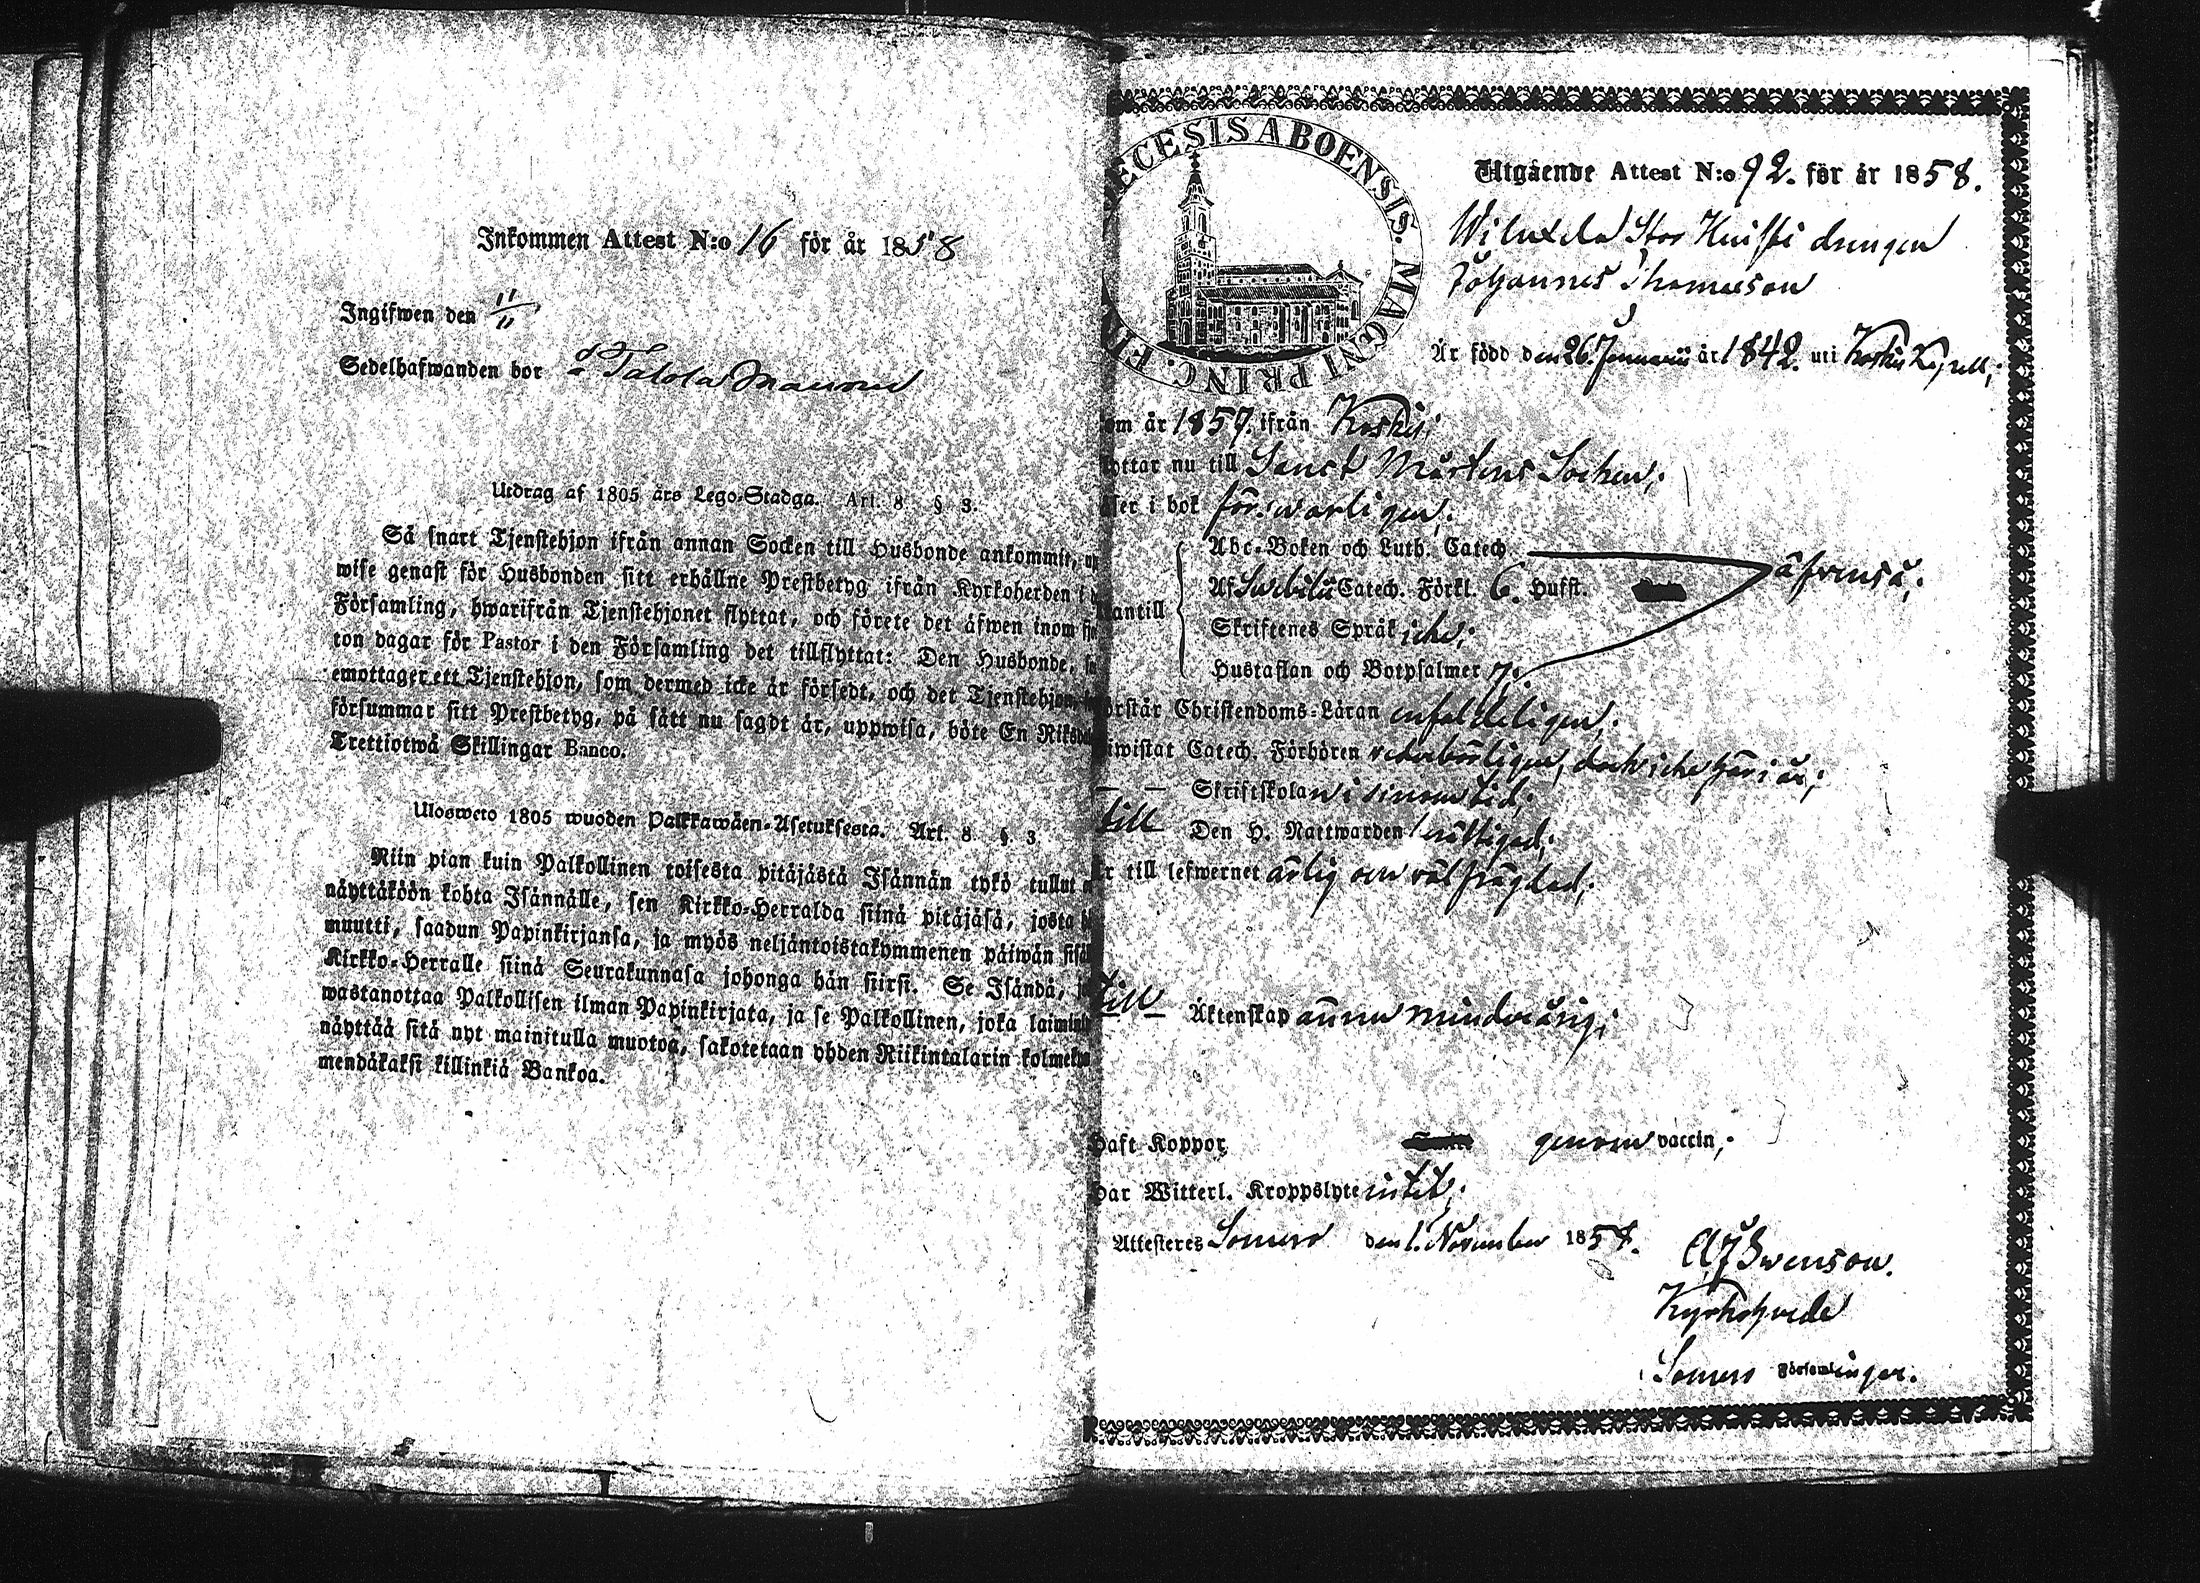 Inkommen Attest N:o 16 för år 1858
Ingifwen den 11/11
Sedelhafwanden bor å Talola
Utdrag af 1805 års Lego-Stadga. Art. 8 § 3.
Så snart Tjenstehjon ifrån annan Socken till Husbonde ankommit, up
wise genast för Husbonden sitt erhållne Prestbetyg ifrån Kyrkoherden i
Församling, hwarifrån Tjenstehjonet flyttat, och förete det äfwen inom fjo
ton dagar för Pastor i den Församling det tillflyttat: Den Husbonde, s
emottager ett Tjenstehjon, som dermed icke är försedt, och det Tjenstehjon,
försummar sitt Prestbetyg, på sätt nu sagdt är, uppwisa, böte En Riksd
Trettiotwå Skillingar Banco.
Ulosweto 1805 wuoden Palkkawäen-Asetuksesta. Art. 8. §. 3
Niin pian kuin Palkollinen toisesta pitäjästä Isännän tykö tullut
näyttäköön kohta Isännälle, sen Kirkko-Herralda siinä pitäjäsä, josta
muutti, saadun Papinkirjansa, ja myös neljäntoistakymmenen päiwän sisä
Kirkko-Herralle siinä Seurakunnasa johonga hän siirsi. Se Isändä, j
wastanottaa Palkollisen ilman Papinkirjata, ja se Palkollinen, joka laimin
näyttää sitä nyt mainitulla muotoa, sakotetaan yhden Riikintalarin kolmeky
mendäkaksi killinkiä Bankoa.
ECESIS ABOENSIS. MAGNI PRINC. FI
Utgående Attest N:o 92. för år 1858.
Stor Huisti drengen
Johannes Thomasson
Är född den 26. Januarii år 1842. uti Koskis Kapell,
om år 1857. ifrån Koskis;
ottar nu till Sanct Mårtens Socken;
ser i bok förswarligen;
antill
Abc-Boken och Luth. Catech
Af Swebilii Catech. Förkl. 6. Hufst.
äfvenså;
Skriftenes Språk icke;
Hustaflan och Botpsalmer 7;
örstår Christendoms-Läran enfaldeligen;
iwistat Catech. Förhören vederbörligen, dock icke här i år;
Skriftskolan i sinom tid;
till Den H. Nattwarden berättigad;
r till lefwernet ärlig och väl frägdad;
till Äktenskap ännu minderårig;
Haft Koppor genom vaccin;
Har Witterl. Kroppslyte intet;
Attesteres Somero den 1. November 1858.
A J Swenson.
Kyrkoherde
i Somero Församlingar.